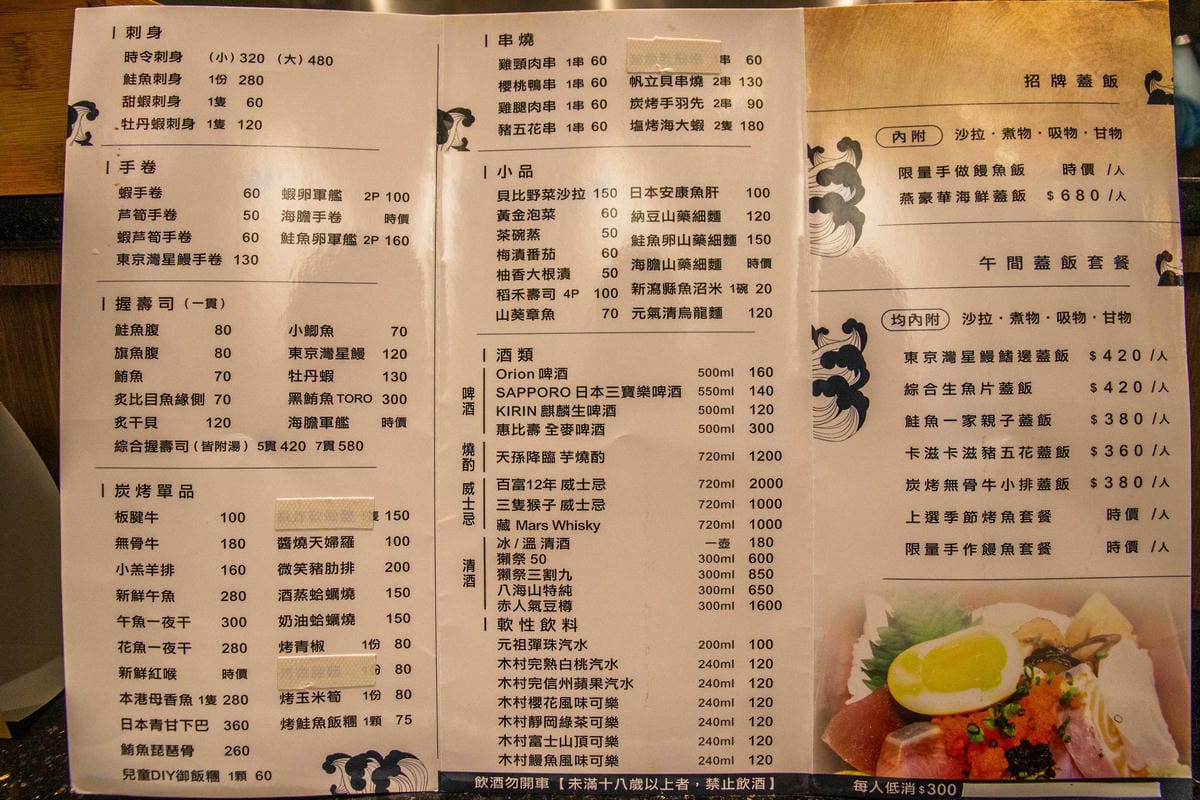 刺身
時令刺身 (小) 320 (大) 480
鮭魚刺身 1份 280
甜蝦刺身 1隻 60
牡丹蝦刺身 1隻 120
手卷
蝦手卷 60 蝦卵軍艦 2P 100
芦筍手卷 50 海膽手卷 時價
蝦芦筍手卷 60 鮭魚卵軍艦 2P 160
東京灣星鰻手卷 130
握壽司 (一貫)
鮭魚腹 80 小鯽魚 70
旗魚腹 80 東京灣星鰻 120
鮪魚 70 牡丹蝦 130
炙比目魚緣側 70 黑鮪魚TORO 300
炙干貝 120 海膽軍艦 時價
綜合握壽司 (皆附湯) 5貫420 7貫580
炭烤單品
板腱牛 100 150
無骨牛 180 醬燒天婦羅 100
小羔羊排 160 微笑豬肋排 200
新鮮午魚 280 酒蒸蛤蠣燒 150
午魚一夜干 300 奶油蛤蠣燒 150
花魚一夜干 280 烤青椒 1份 80
新鮮紅喉 時價 份 80
本港母香魚 1隻 280 烤玉米筍 1份 80
日本青甘下巴 360 烤鮭魚飯糰 1顆 75
鮪魚琵琶骨 260
兒童DIY御飯糰 1顆 60
串燒
雞頸肉串 1串 60 串 60
櫻桃鴨串 1串 60 帆立貝串燒 2串 130
雞腿肉串 1串 60 炭烤手羽先 2串 90
豬五花串 1串 60 塩烤海大蝦 2隻 180
小品
貝比野菜沙拉 150 日本安康魚肝 100
黃金泡菜 60 納豆山藥細麵 120
茶碗蒸 50 鮭魚卵山藥細麵 150
梅漬番茄 60 海膽山藥細麵 時價
柚香大根漬 50 新瀉縣魚沼米 1碗 20
稻禾壽司 4P 100 元氣清烏龍麵 120
山葵章魚 70
酒類
啤酒
Orion 啤酒 500ml 160
SAPPORO 日本三寶樂啤酒 550ml 140
KIRIN 麒麟生啤酒 500ml 120
惠比壽 全麥啤酒 500ml 300
燒酌
天孫降臨 芋燒酌 720ml 1200
威士忌
百富12年 威士忌 720ml 2000
三隻猴子 威士忌 720ml 1000
藏 Mars Whisky 720ml 1000
清酒
冰 / 溫 清酒 一壺 180
獺祭 50 300ml 600
獺祭三割九 300ml 850
八海山特純 300ml 650
赤人氣豆樽 300ml 1600
軟性飲料
元祖彈珠汽水 200ml 100
木村完熟白桃汽水 240ml 120
木村完信州蘋果汽水 240ml 120
木村櫻花風味可樂 240ml 120
木村靜岡綠茶可樂 240ml 120
木村富士山頂可樂 240ml 120
木村鰻魚風味可樂 240ml 120
飲酒勿開車【未滿十八歲以上者，禁止飲酒】
招牌蓋飯
內附 沙拉・煮物・吸物・甘物
限量手做饅魚飯 時價 /人
燕豪華海鮮蓋飯 $680 /人
午間蓋飯套餐
均內附 沙拉・煮物・吸物・甘物
東京灣星鰻鰭邊蓋飯 $420 /人
綜合生魚片蓋飯 $420 /人
鮭魚一家親子蓋飯 $380 /人
卡滋卡滋豬五花蓋飯 $360 /人
炭烤無骨牛小排蓋飯 $380 /人
上選季節烤魚套餐 時價 /人
限量手作饅魚套餐 時價 /人
每人低消$300